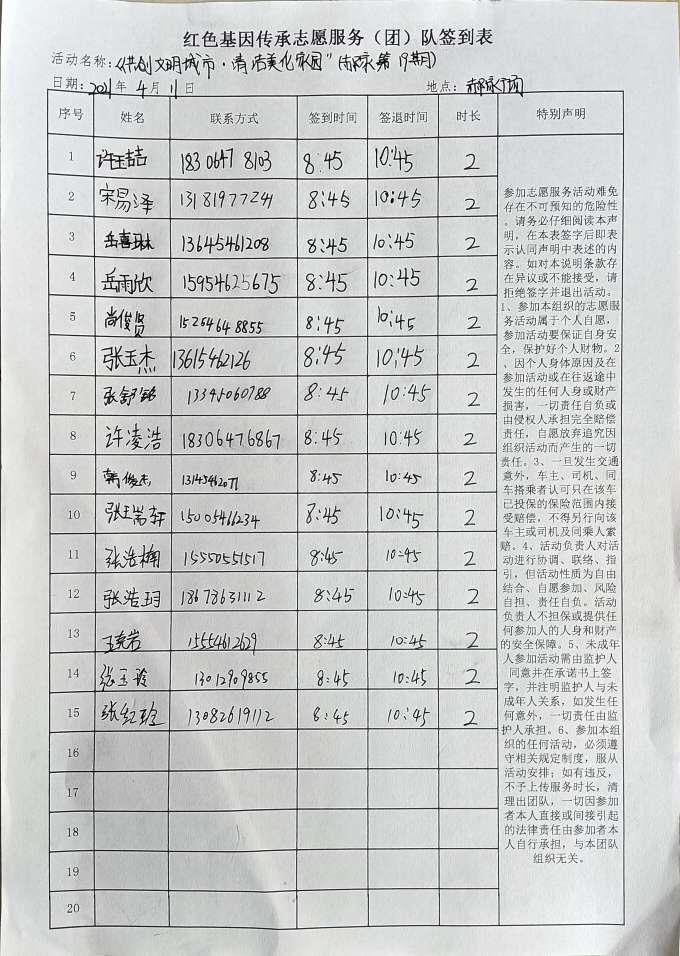 红色基因传承志愿服务（团）队签到表
活动名称:《共创文明城市·清洁美化家园"(第19期)
日期: 2021年 4月 11日 地点:
序号 姓名 联系方式 签到时间 签退时间 时长 特别声明
1 许玉喆 18306478103 8:45 10:45 2
2 宋易泽 13181977241 8:45 10:45 2
3 岳喜琳 13645461208 8:45 10:45 2
4 岳雨欣 15954625675 8:45 10:45 2
5 尚俊贤 15254648855 8:45 10:45 2
6 张玉杰 13615462126 8:45 10:45 2
7 张舒铭 13395060788 8:45 10:45 2
8 许凌浩 18306476867 8:45 10:45 2
9 韩俊杰 13145462071 8:45 10:45 2
10 张瑞轩 15005466234 8:45 10:45 2
11 张浩楠 15550551517 8:45 10:45 2
12 张浩玥 18678631112 8:45 10:45 2
13 15554612629 8:45 10:45 2
14 张玉玲 13012909855 8:45 10:45 2
15 张红玲 13082619112 8:45 10:45 2
16
17
18
19
20
参加志愿服务活动难免
存在不可预知的危险性
。请务必仔细阅读本声
明，在本表签字后即表
示认同声明中表述的内
容。如对本说明条款存
在异议或不能接受，请
拒绝签字并退出活动。
1、参加本组织的志愿服
务活动属于个人自愿，
参加活动要保证自身安
全，保护好个人财物。2
、因个人身体原因及在
参加活动或在往返途中
发生的任何人身或财产
损害，一切责任自负或
由侵权人承担完全赔偿
责任，自愿放弃追究因
组织活动而产生的一切
责任。3、一旦发生交通
意外，车主、司机、同
车搭乘者认可只在该车
已投保的保险范围内接
受赔偿，不得另行向该
车主或司机及同乘人索
赔。4、活动负责人对活
动进行协调、联络、指
引，但活动性质为自由
结合、自愿参加、风险
自担、责任自负。活动
负责人不担保或提供任
何参加人的人身和财产
的安全保障。5、未成年
人参加活动需由监护人
同意并在承诺书上签
字，并注明监护人与未
成年人关系，如发生任
何意外，一切责任由监
护人承担。6、参加本组
织的任何活动，必须遵
守相关规定制度，服从
活动安排；如有违反，
不予上传服务时长，清
理出团队，一切因参加
者本人直接或间接引起
的法律责任由参加者本
人自行承担，与本团队
组织无关。